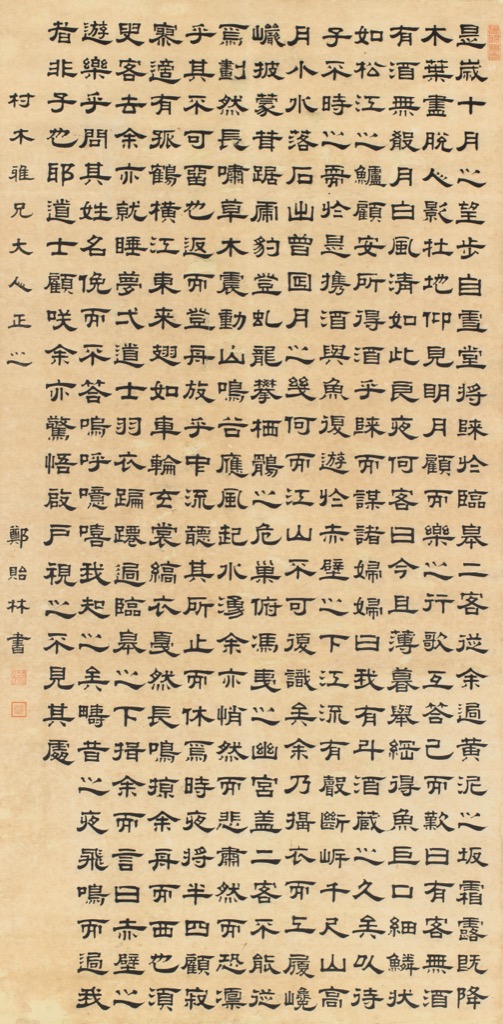 是歲十月之望步自雪堂將歸於臨皋二客從余過黃泥之坂霜露既降
木葉盡脫人影在地仰見明月顧而樂之行歌互答已而歎曰有客無酒
有酒無殽月白風清如此良夜何客曰今且薄暮舉網得魚巨口細鱗狀
如松江之鱸顧安所得酒乎歸而謀諸婦婦曰我有斗酒藏之久矣以待
子不時之需於是攜酒與魚復遊於赤壁之下江流有聲斷岸千尺山高
月小水落石出曾日月之幾何而江山不可復識矣余乃攝衣而上履巉
巖披蒙茸踞虎豹登虬龍攀栖鶻之危巢俯馮夷之幽宮蓋二客不能從
焉劃然長嘯草木震動山鳴谷應風起水湧余亦悄然而悲肅然而恐凜
乎其不可留也返而登舟放乎中流聽其所止而休焉時夜將半四顧寂
寥適有孤鶴橫江東來翅如車輪玄裳縞衣戛然長鳴掠余舟而西也須
臾客去余亦就睡夢弌道士羽衣蹁躚過臨皋之下揖余而言曰赤壁之
遊樂乎問其姓名俛而不答嗚呼噫嘻我知之矣疇昔之夜飛鳴而過我
者非子也耶道士顧咲余亦驚悟啟戶視之不見其處
村木雅兄大人正之
鄭貽林書